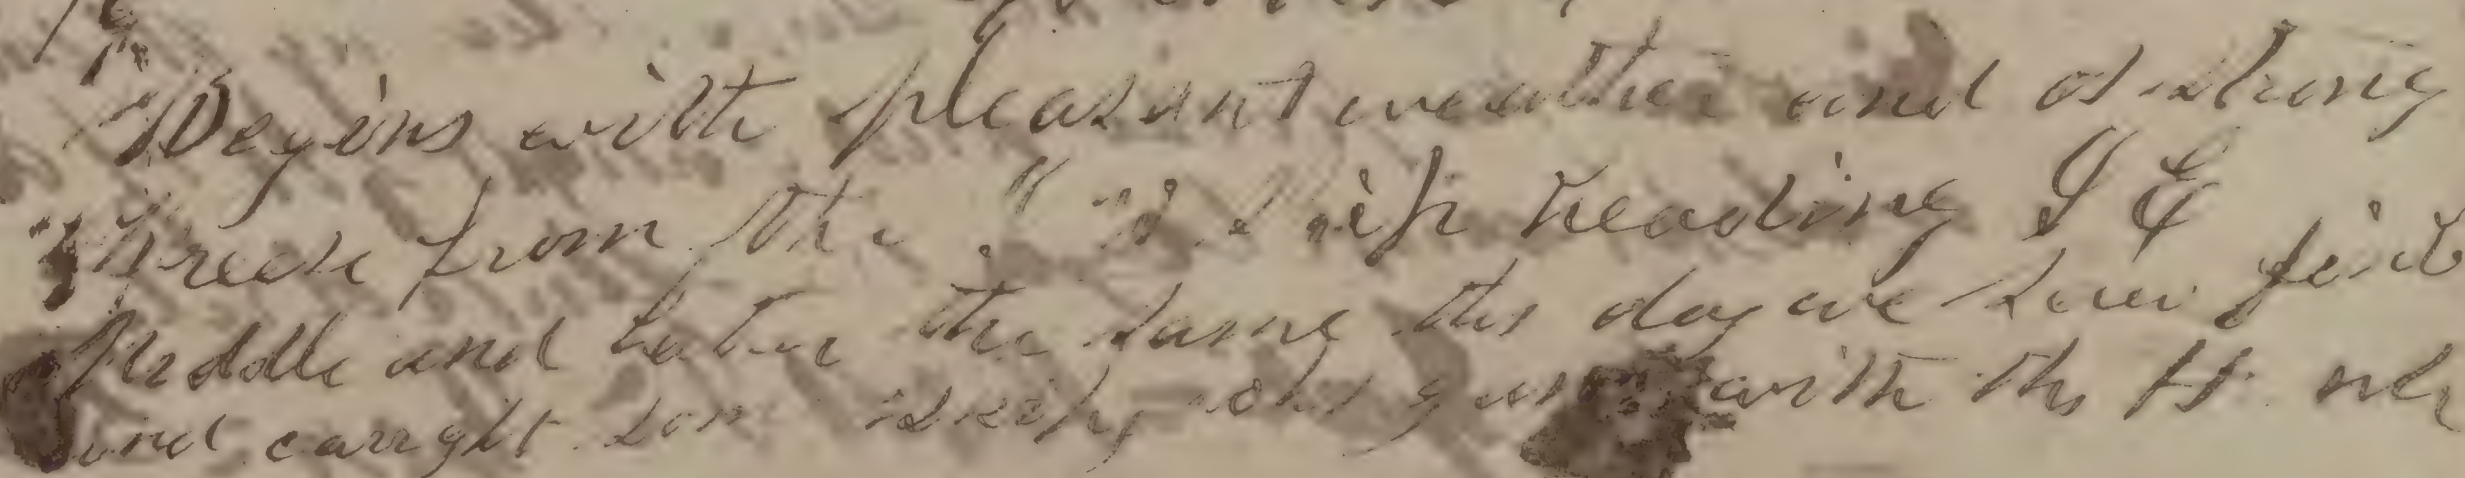 Begins with pleasant weather and a strong
Breese from the ship heading S E
Middle and later the same this day we saw
and caught som with the